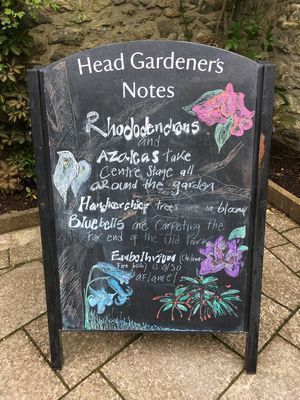 Head Gardener's
Notes
Rhododendrons
and
Azaleas take
Centre Stage all
around the garden
Handkerchief trees are in bloom
Bluebells are carpeting the
far end of the Old Park
Embothrium (Chilean
Fire bush) is also
aflame!